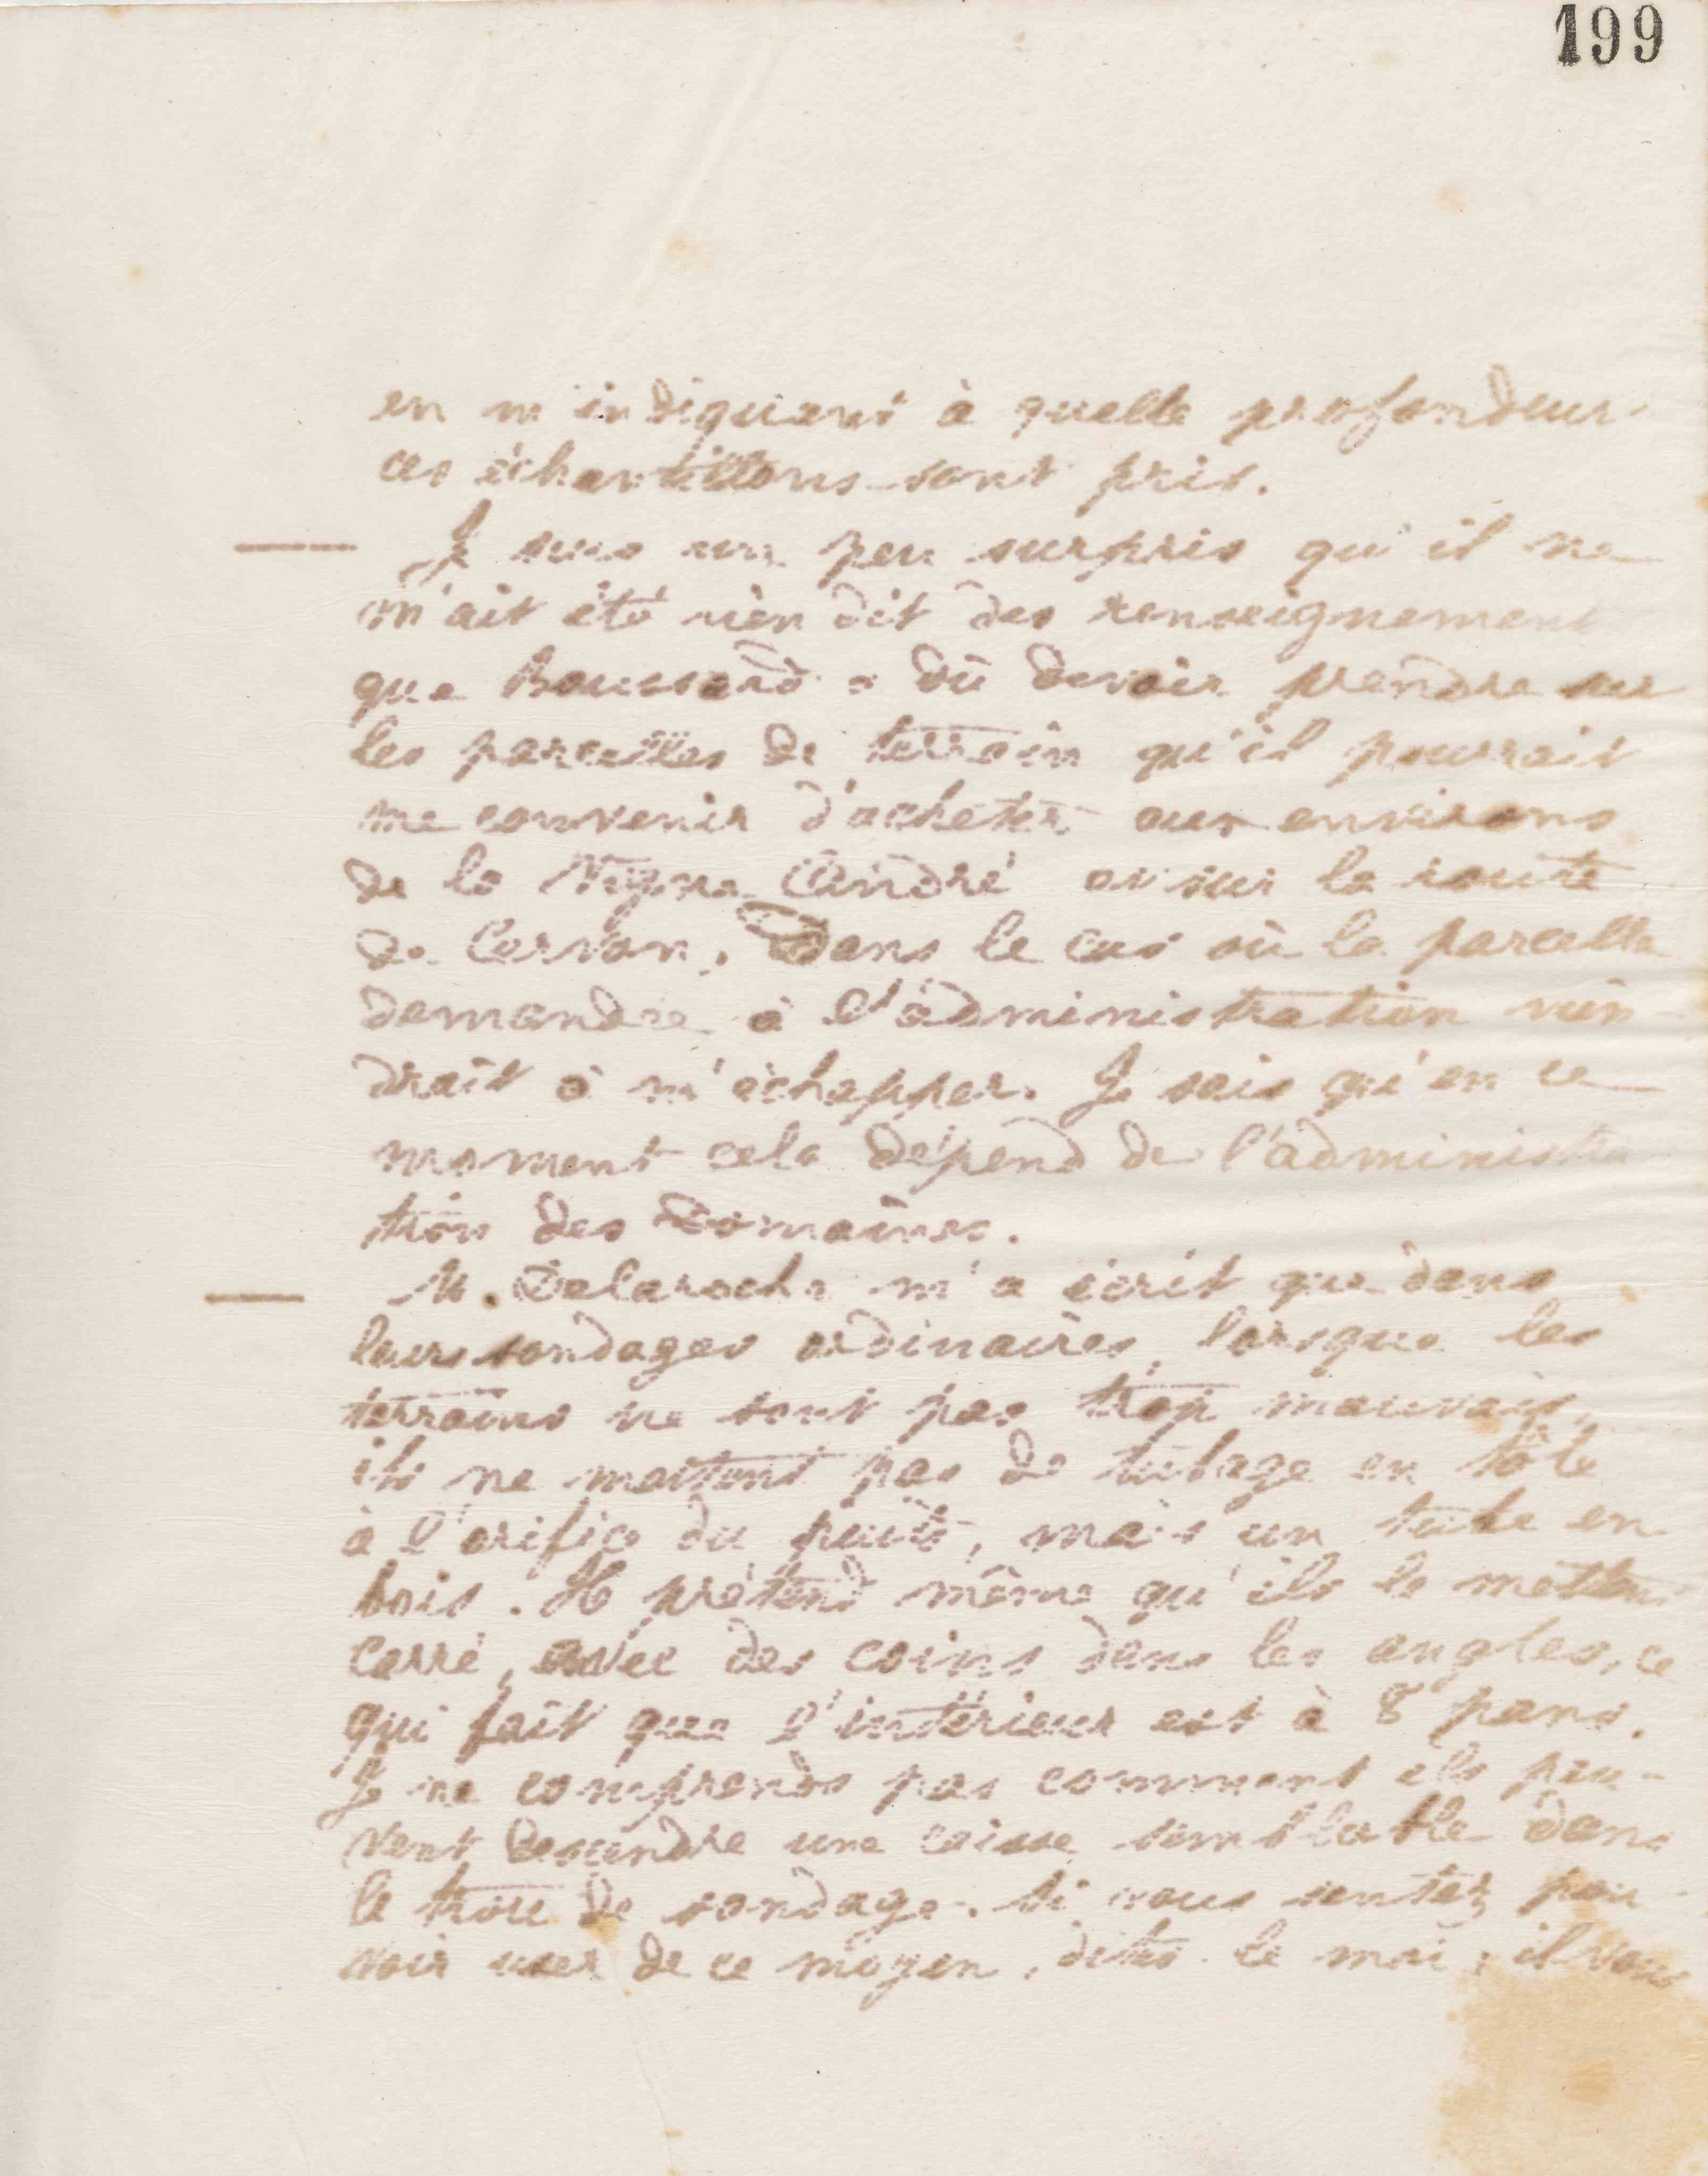 199
en m'indiquant à quelle profondeur
ces échantillons sont pris.
Je suis un peu surpris qu'il ne
m'ait été rien dit des renseignement
que Boussard a dû devoir prendre sur
les parcelles de terrain qu'il pourrait
me convenir d'acheter aux environs
de la Vigna André ou sur la route
de Dans le cas où la parcelle
demandée à l'administration vien-
drait à m'échapper. Je sais qu'en ce
moment cela dépend de l'administra
tion des Domaines.
M. Delaroche m'a écrit que dans
leurs sondages ordinaires, lorsque les
terrains ne sont pas trop mauvais,
ils ne mettent pas de tubage en tôle
à l'orifice du puits, mais un tube en
bois. Il prétend même qu'ils le mettent
carré, avec des coins dans les angles, ce
qui fait que l'intérieur est à 8 pans.
Je ne comprends pas comment ils peu-
vent descendre une caisse semblable dans
le trou de sondage. Si vous sentez pou-
voir user de ce moyen, dites le moi ; il vous